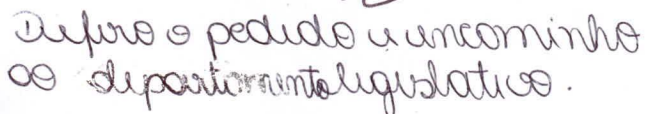 Defiro o pedido e encaminho
ao departamento legislativo.